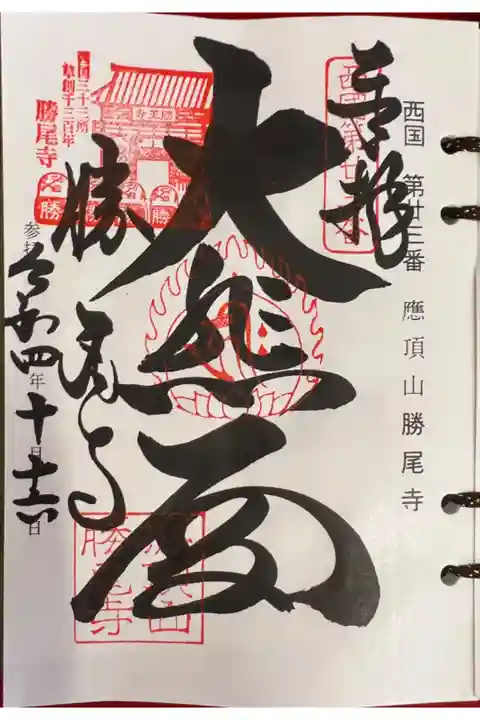 西国　第廿三番　應頂山勝尾寺
奉拝
西國第廿三番
大悲閣
應頂山
勝尾寺
西国三十三所
草創千三百年
勝尾寺
勝尾寺
令和四年十月十六日